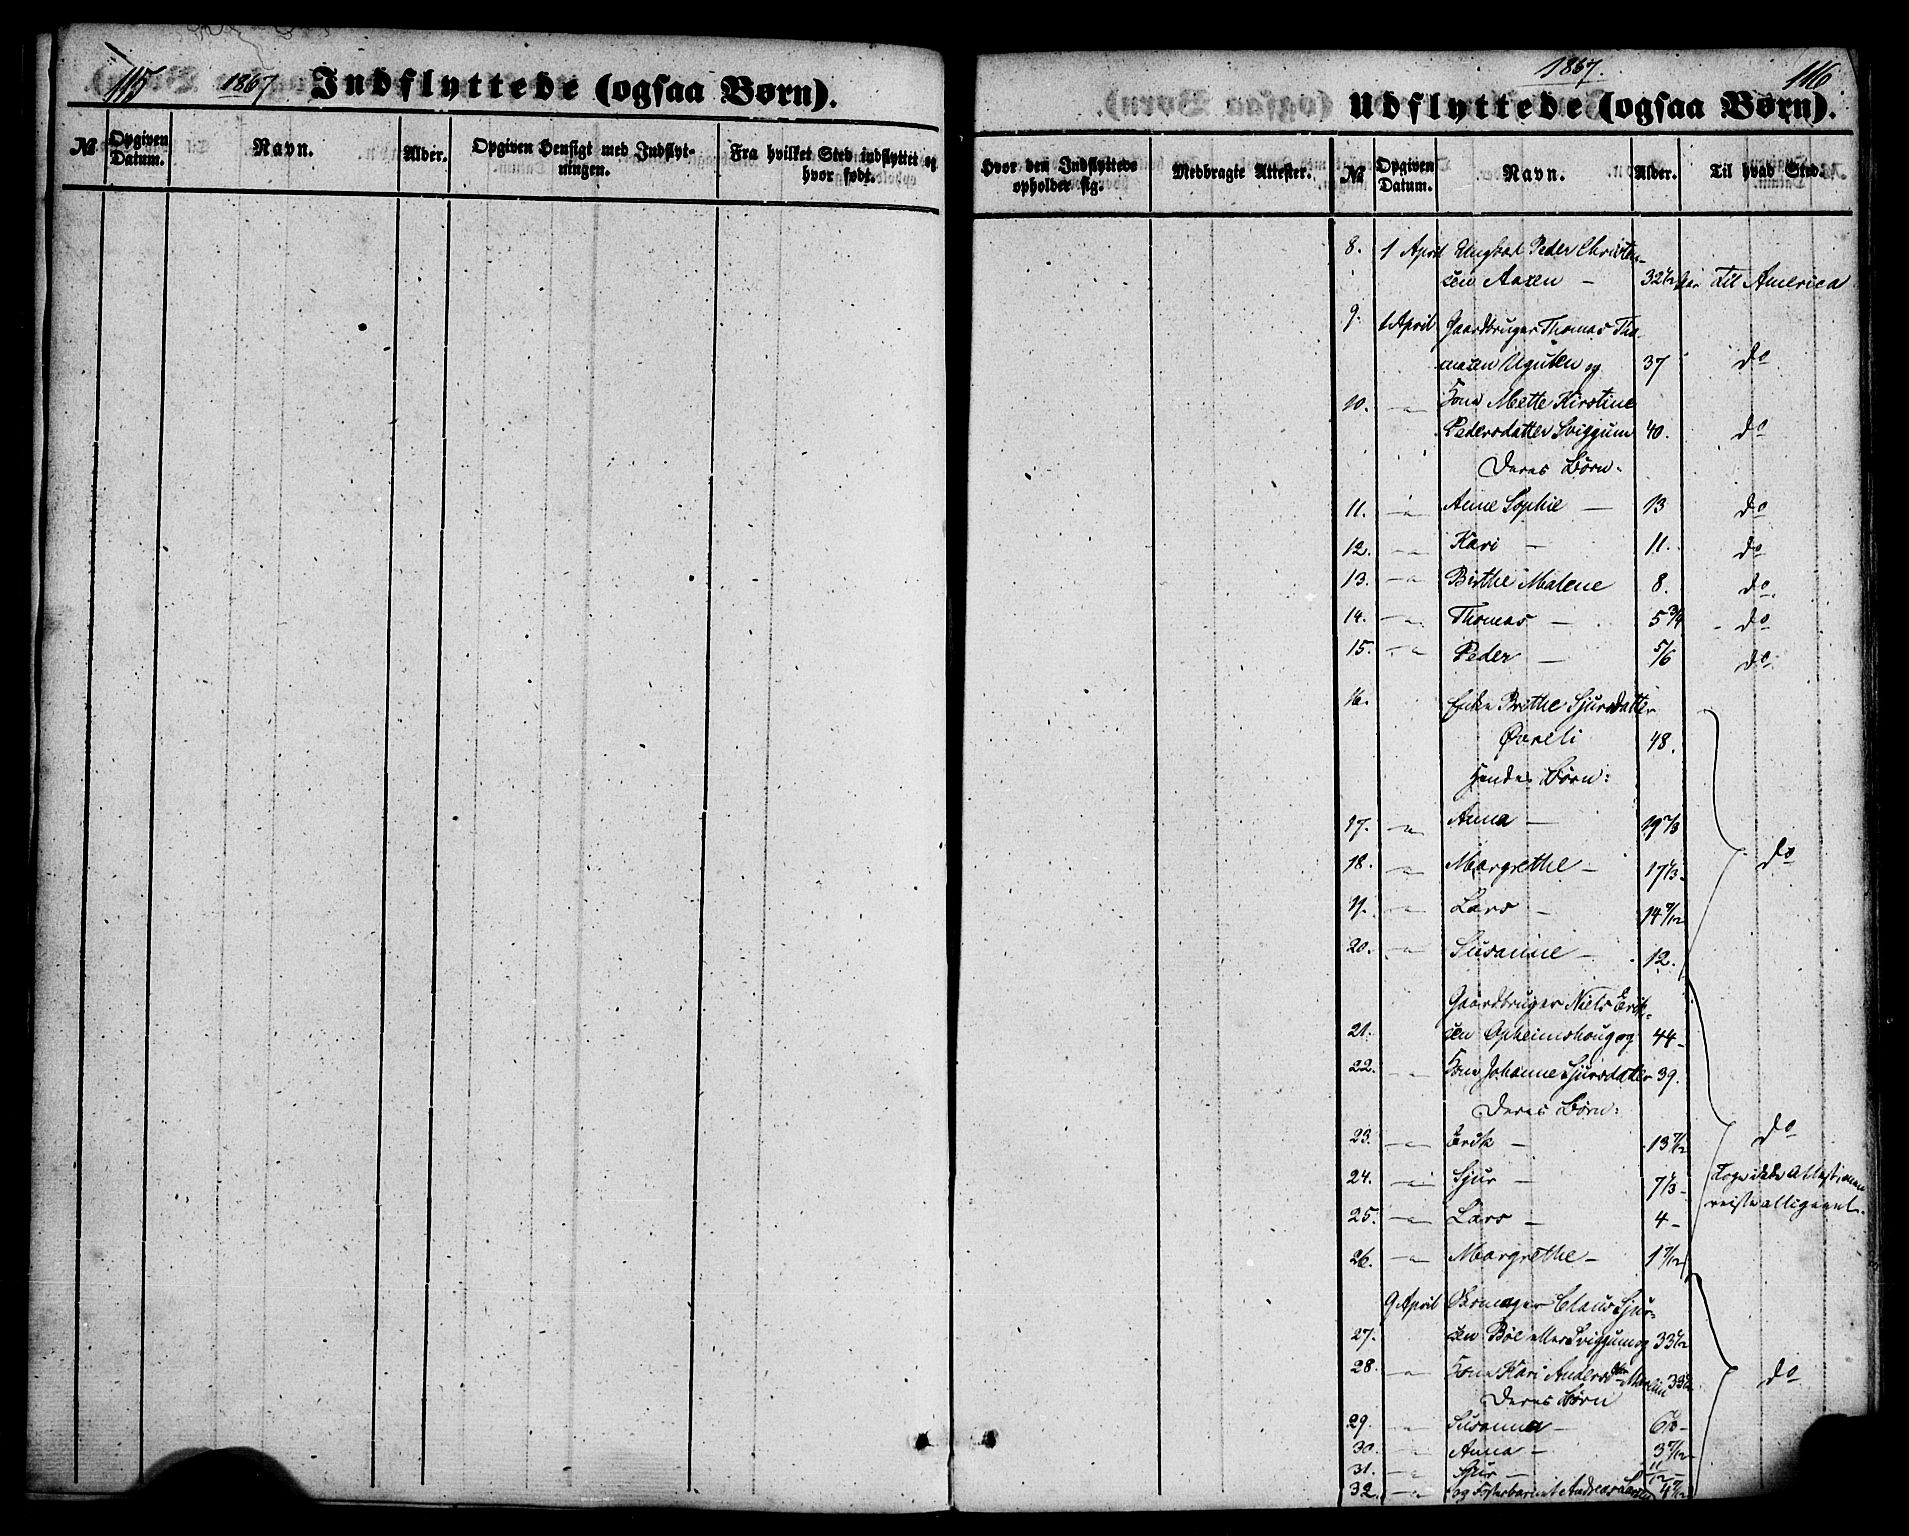 115 1867 Indflyttede (ogsaa Børn).
№ Opgiven Datum. Navn. Alder. Opgiven Hensigt med Indflyt-
ningen. Fra hvilket Sted indflyttet og
hvor født.
1867. 116
Udflyttede (ogsaa Børn).
Hvor den Indflyttede
opholder sig. Medbragte Attester. № Opgiven Datum. Navn. Alder. Til hvad Sted.
8. 1 April Ungkarl Peder Christen-
sen Aasen - 32 Til America
9. 1 April Gaardbruger Thomas Tho-
massen og 37 do
10. -"- Kone Mette Kirstine
Pedersdatter Sviggum 40. do
Deres Børn.
11. -"- Anne Sophie - 13 do
12. -"- Kari - 11. do
13. -"- Birthe Malene 8. do
14. -"- Thomas - 5 3/4 - do
15. -"- Peder - 5/6 do
16. Enke Brithe Sjursdatter
Øvreli 48.
Hendes Børn:
17. -"- Anna - 19 2/3
18. -"- Margrethe - 17 1/3 do
19. -"- Lars - 14
20. -"- Susanne - 12.
Gaardbruger Niels Erik-
21. sen Opheimshoug og 44 -
22. -"- Kone Johanne Sjursdatter 39.
Deres Børn:
23. -"- Erik - 13 do
24. -"- Sjur - 7 1/3 - Tog ikke Attest, men
25. -"- Lars - 4 - reiste alligevel.
26. -"- Margrethe - 1
9 April Skomager Claus Sjur-
27. sen Bøe eller Sviggum og 33
28. -"- Kone Kari Andersdtr do
Deres Børn
29. -"- Susanna -
30. -"- Anna - 3
31. -"- Sjur - 11/12 -
32. -"- og Fosterbarnet Andreas 4